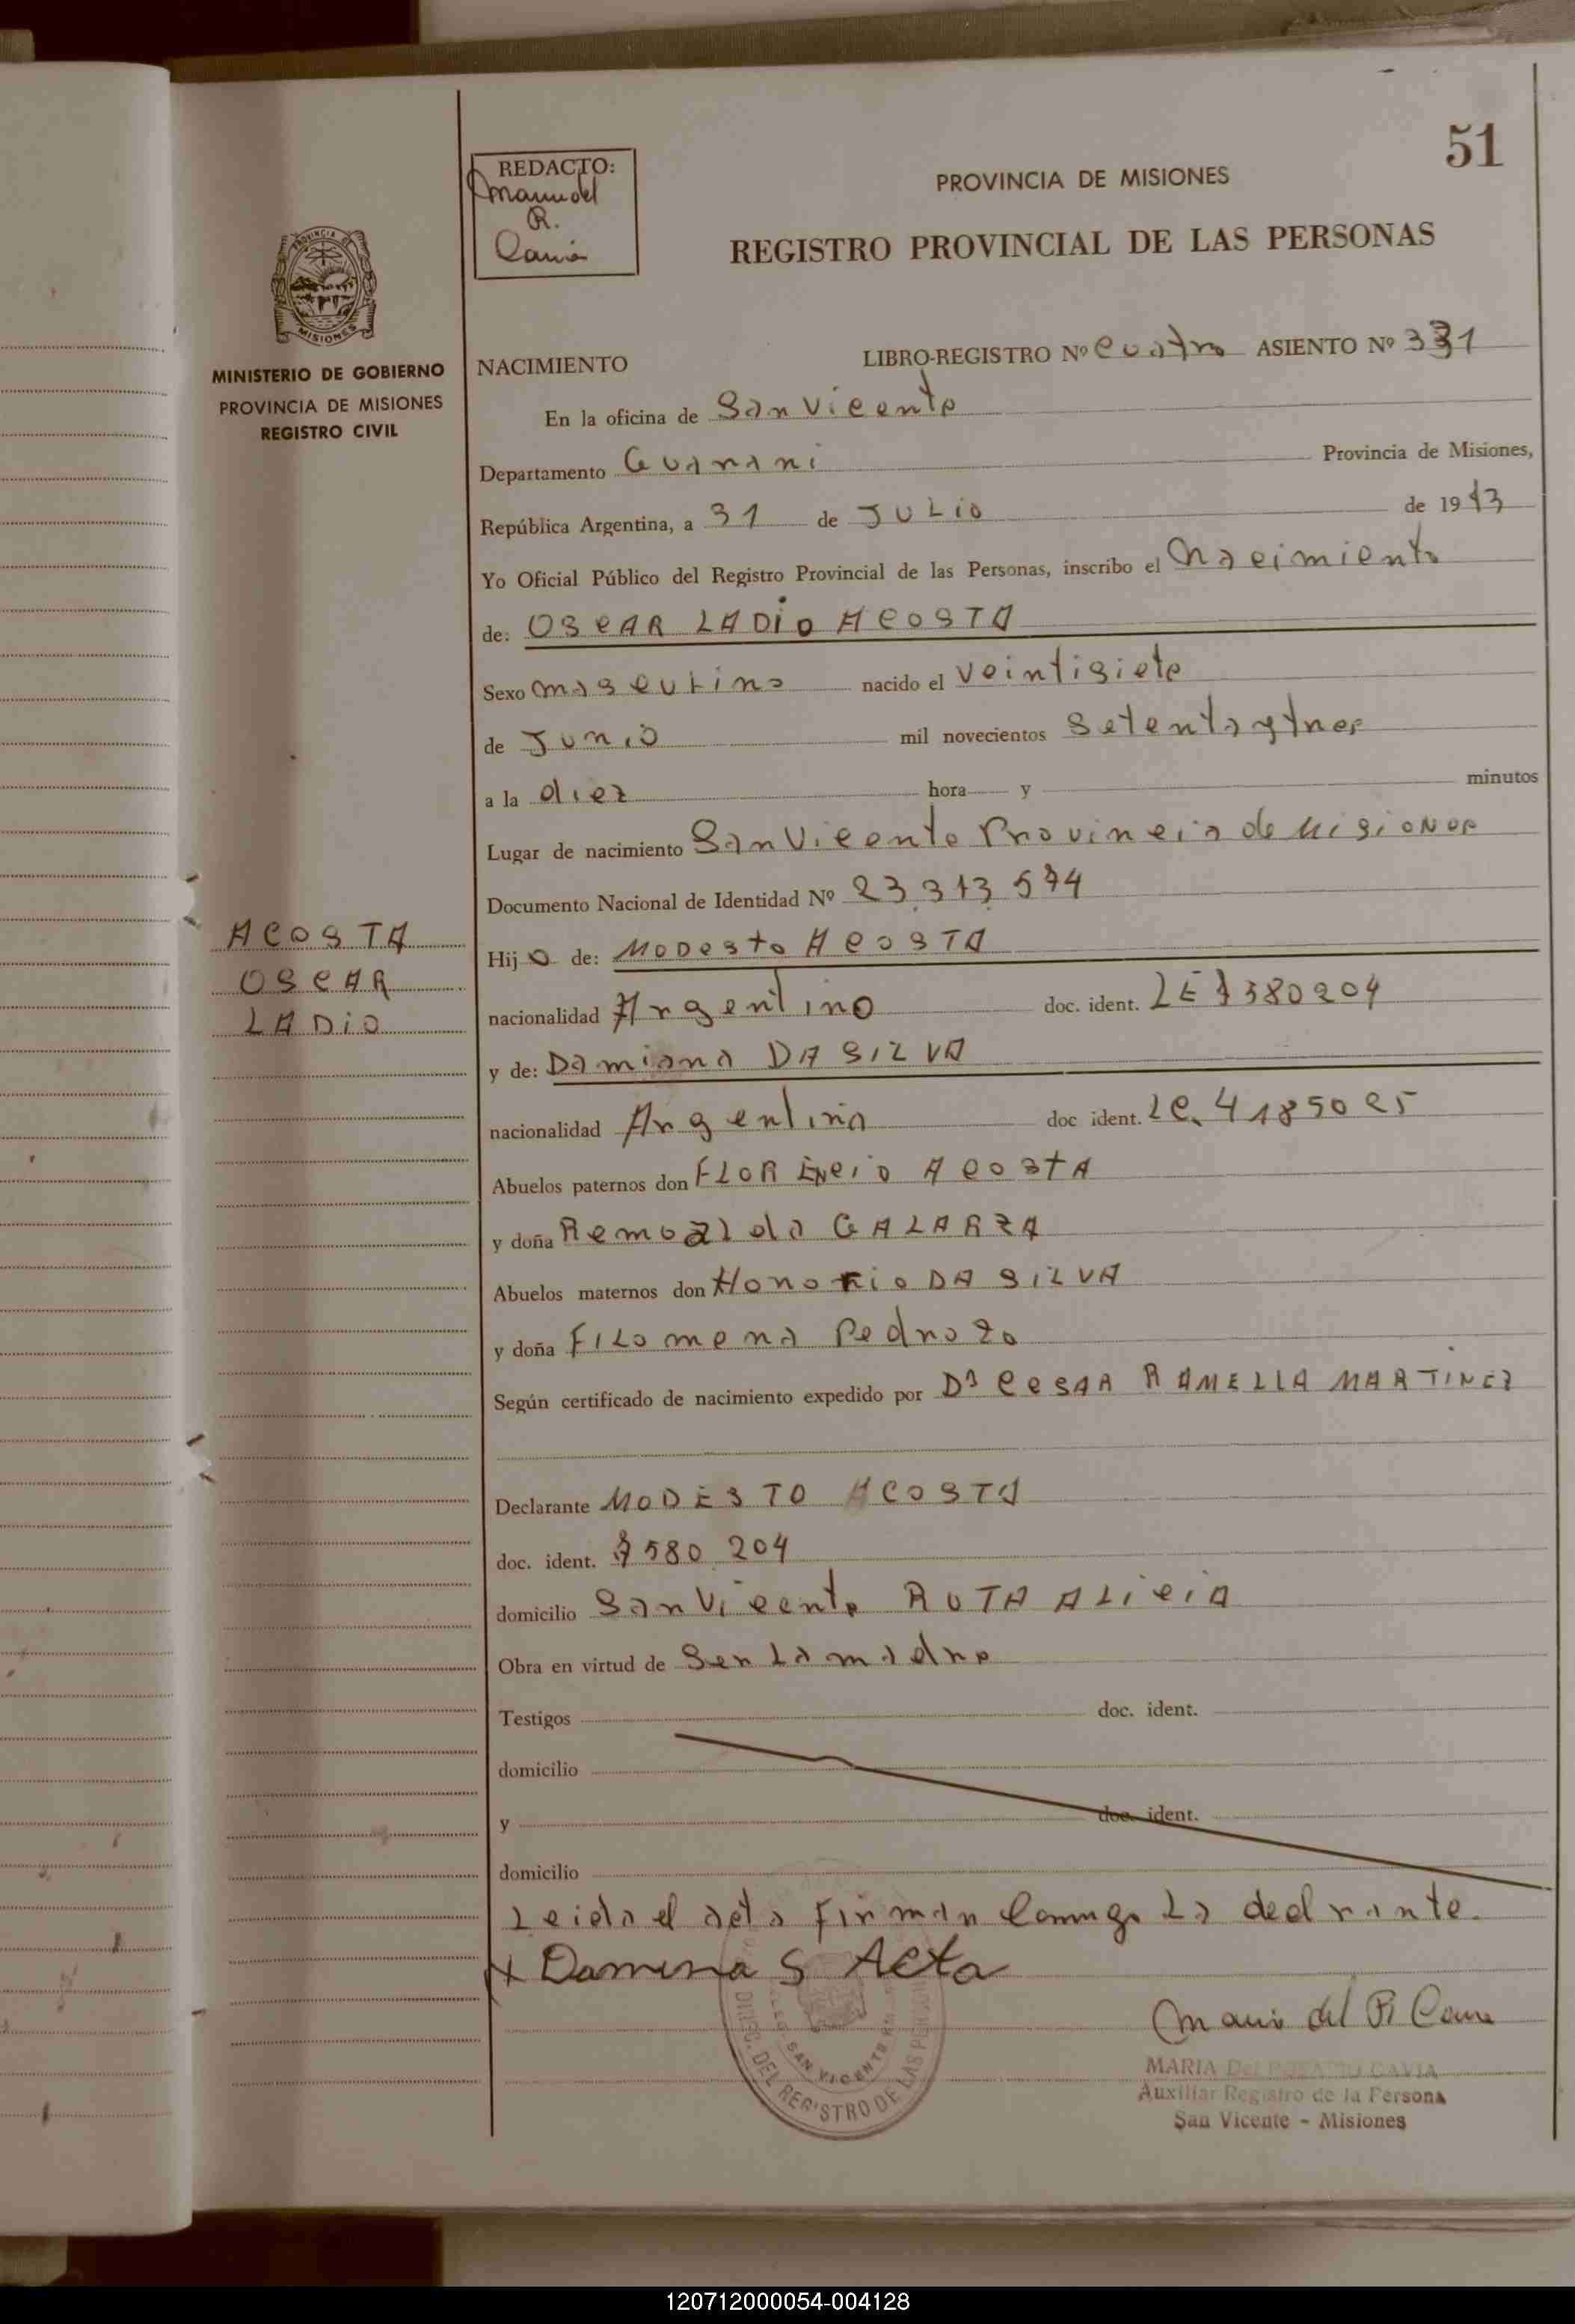 51
REDACTO:
R.
PROVINCIA DE MISIONES
REGISTRO PROVINCIAL DE LAS PERSONAS
PROVINCIA DE
MISIONES
MINISTERIO DE GOBIERNO
PROVINCIA DE MISIONES
REGISTRO CIVIL
NACIMIENTO LIBRO-REGISTRO Nº cuatro ASIENTO Nº 331
En la oficina de San Vicente
Departamento Guarani Provincia de Misiones,
República Argentina, a 31 de JULio de 1973
Yo Oficial Público del Registro Provincial de las Personas, inscribo el Nacimiento
de: OSCAR LADiO ACOSTA
Sexo masculino nacido el veintisiete
de Junio mil novecientos setenta y tres
a la diez hora y minutos
Lugar de nacimiento San Vicente Provincia de Misiones
Documento Nacional de Identidad Nº 23.313.574
ACOSTA
OSCAR
LADiO
Hijo de: MODesto ACOSTA
nacionalidad Argentino doc. ident. LE 7580204
y de: Damiana DA SILVA
nacionalidad Argentina doc ident. LC. 4185025
Abuelos paternos don FLORENciO ACOStA
y doña Remoalda GALARZA
Abuelos maternos don Honorio DA SILVA
y doña FILomena Pedrozo
Según certificado de nacimiento expedido por Dr CESAR RAMELLA MARTINEZ
Declarante MODESTO ACOSTA
doc. ident. 7580.204
domicilio San Vicente RUTA ALiciA
Obra en virtud de Ser La madre
Testigos doc. ident.
domicilio
y doc. ident.
domicilio
Leida el acta Firman Conmigo La declarante.
DIREC. DEL REGISTRO DE LAS PERSONAS
SAN VICENTE
MARIA Del ROSARIO CAVIA
Auxiliar Registro de la Persona
San Vicente - Misiones
120712000054-004128